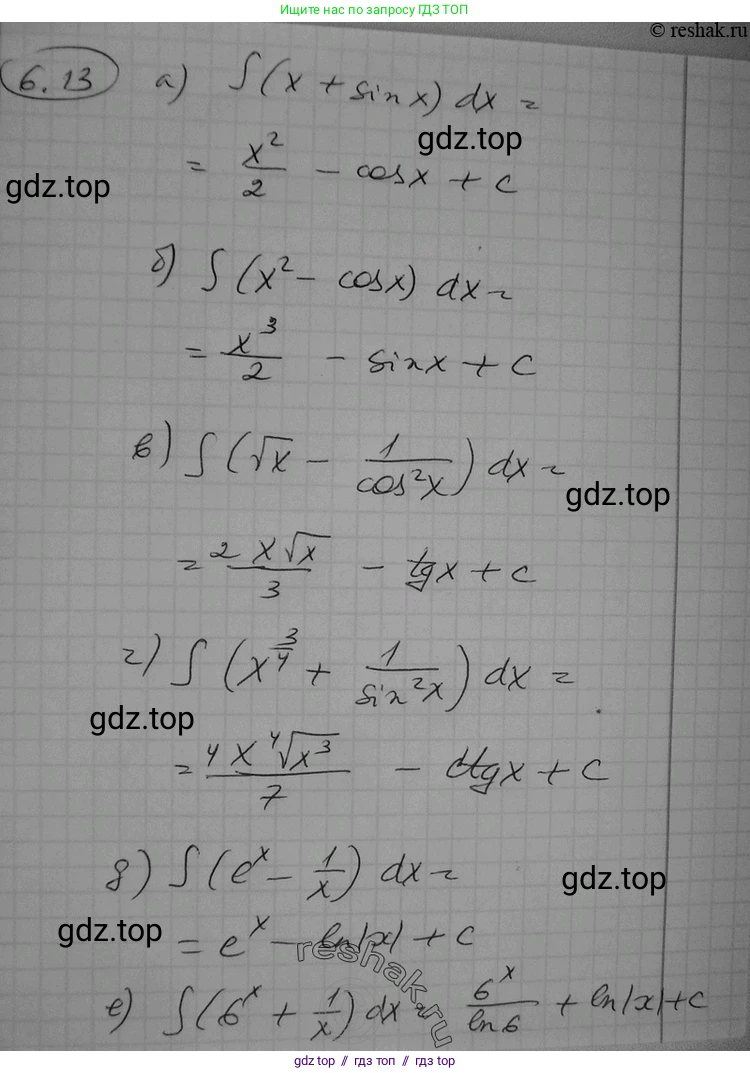 Ищите нас по запросу ГДЗ ТОП
© reshak.ru
6.13 а) ∫(x + sin x) dx =
gdz.top
= x²/2 - cos x + c
gdz.top
б) ∫(x² - cos x) dx =
= x³/2 - sin x + c
в) ∫(√x - 1/cos²x) dx =
gdz.top
= 2x√x/3 - tg x + c
г) ∫(x^(3/4) + 1/sin²x) dx =
gdz.top
= 4x ⁴√x³/7 - ctg x + c
д) ∫(e^x - 1/x) dx =
gdz.top
gdz.top
= e^x - ln|x| + c
reshak.ru
е) ∫(6^x + 1/x) dx = 6^x/ln 6 + ln|x| + c
gdz.top // гдз топ // gdz.top